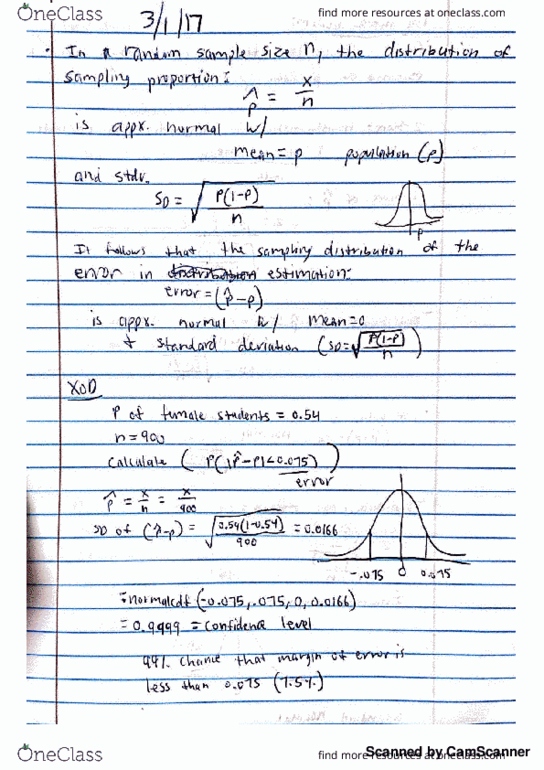 OneClass
find more resources at oneclass.com
3/1/17
In a random sample size n, the distribution of
sampling proportion:
p̂ = x/n
is appx. normal w/
mean = p population (p)
and stdv.
SD = √(p(1-p)/n)
p
It follows that the sampling distribution of the
error in distribution estimation:
error = (p̂ - p)
is appx. normal w/ mean=0
+ standard deviation (SD=√(p(1-p)/n))
p of female students = 0.54
n = 900
calculate (P(|p̂-p|<0.075))
error
p̂ = x/n = x/900
SD of (p̂-p) = √(0.54(1-0.54)/900) = 0.0166
-.075 0 0.075
=normalcdf(-0.075, .075, 0, 0.0166)
= 0.9999 = confidence level
99% chance that margin of error is
less than 0.075 (7.5%)
Scanned by CamScanner
OneClass
find more resources at oneclass.com